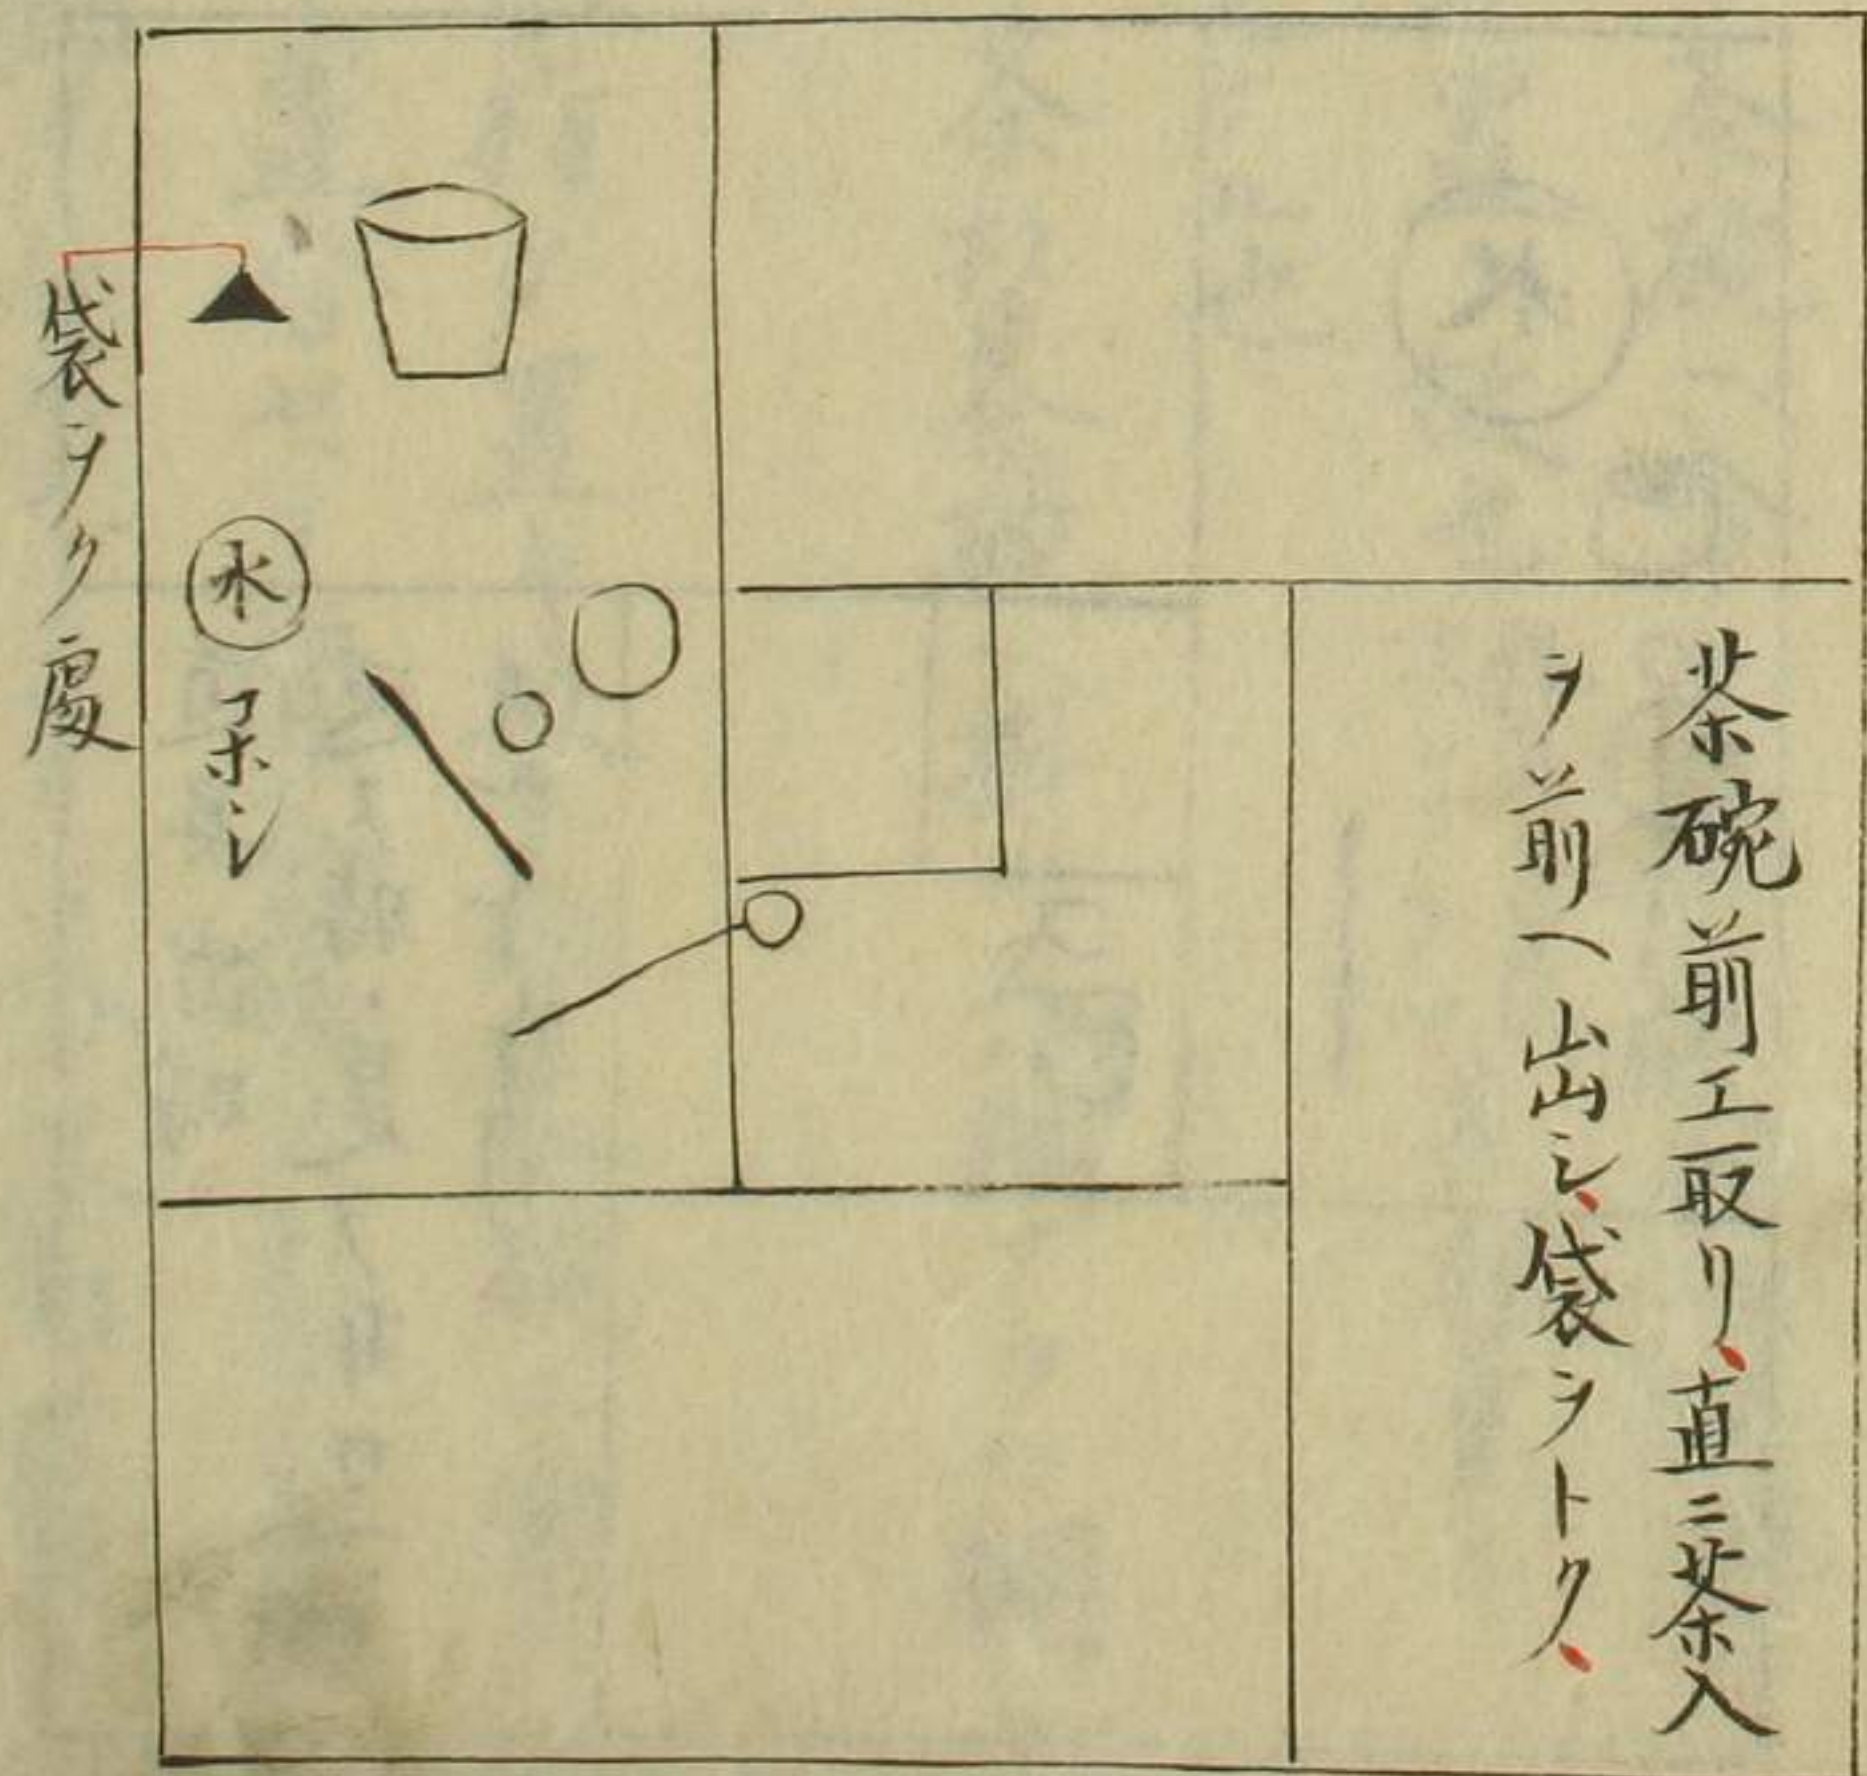 茶碗前エ取リ、直ニ茶入
ヲ前ヘ出シ、袋ヲトク、
水
コホシ
袋ヲク處